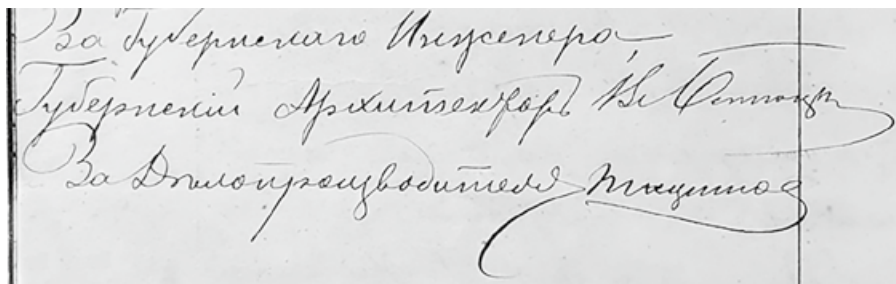 За Губернскаго Инженера,
Губернскій Архитекторъ
За Дѣлопроизводителя